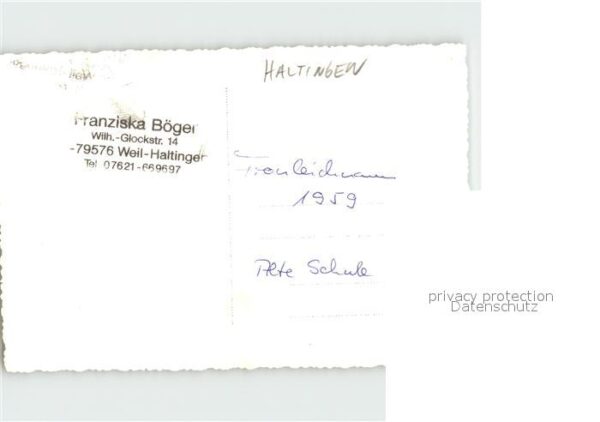 HALTINGEN
Franziska Böger
Wilh.-Glockstr. 14
-79576 Weil-Haltingen
Tel. 07621-669697
Fronleichnam
1959
Alte Schule
privacy protection
Datenschutz